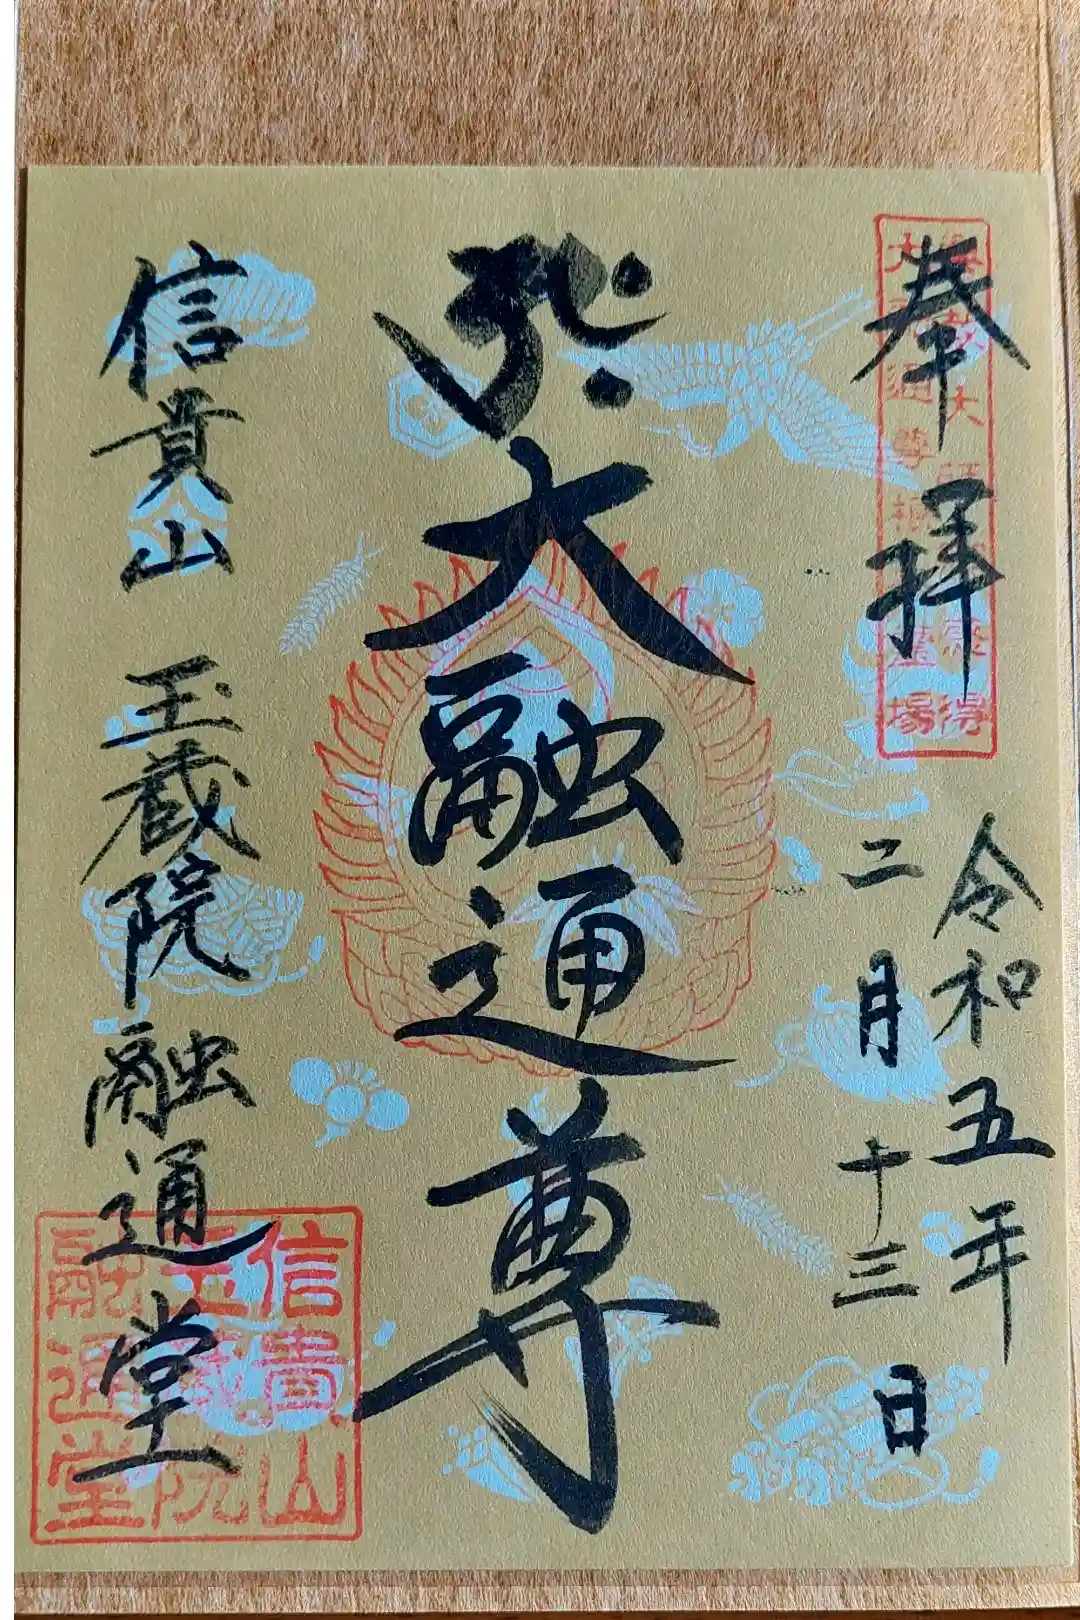 奉拝
令和五年
二月十三日
大融通尊
信貴山 玉蔵院 融通堂
信貴山
玉蔵院
融通堂